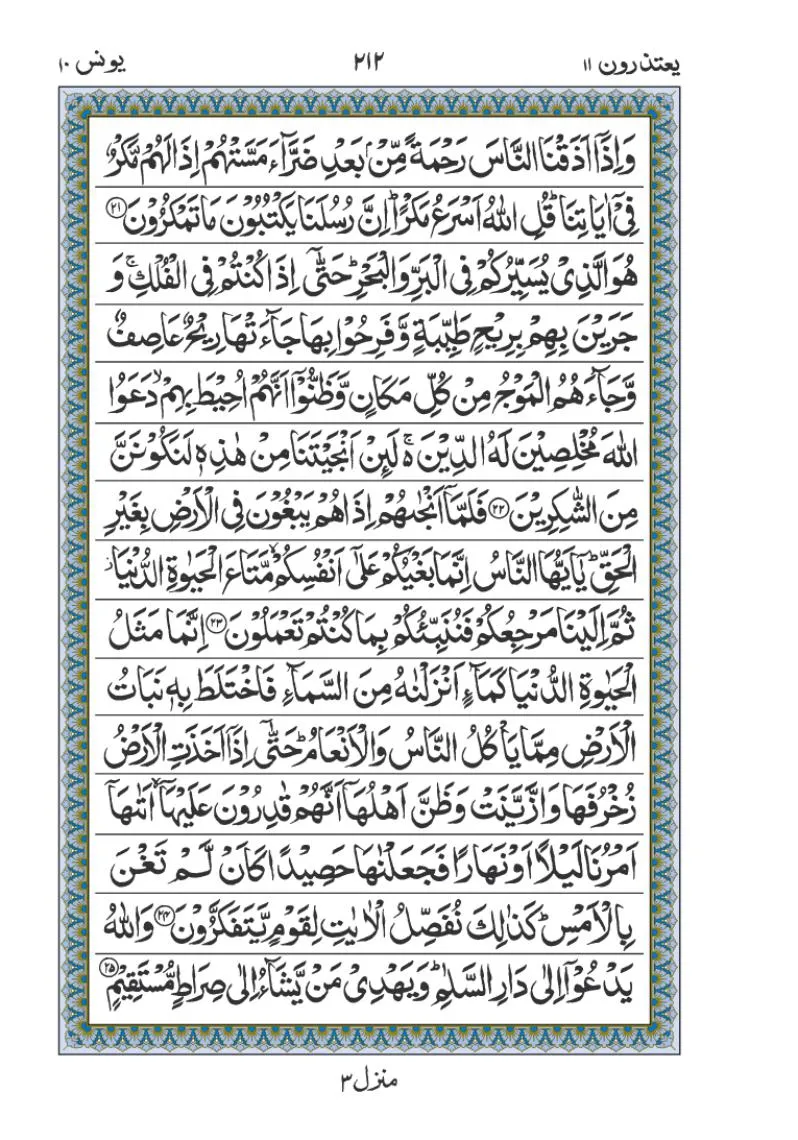 يعتذرون ١١
٢١٢
يونس ١٠
وَاِذَاۤ اَذَقْنَا النَّاسَ رَحْمَةً مِّنْۢ بَعْدِ ضَرَّآءَ مَسَّتْهُمْ اِذَا لَهُمْ مَّكْرٌ
فِیْۤ اٰیَاتِنَا ؕ قُلِ اللّٰهُ اَسْرَعُ مَكْرًا ؕ اِنَّ رُسُلَنَا یَكْتُبُوْنَ مَا تَمْكُرُوْنَ ﴿۲۱﴾
هُوَ الَّذِیْ یُسَیِّرُكُمْ فِی الْبَرِّ وَالْبَحْرِ ؕ حَتّٰۤی اِذَا كُنْتُمْ فِی الْفُلْكِ ۚ وَ
جَرَیْنَ بِهِمْ بِرِیْحٍ طَیِّبَةٍ وَّفَرِحُوْا بِهَا جَآءَتْهَا رِیْحٌ عَاصِفٌ
وَّجَآءَهُمُ الْمَوْجُ مِنْ كُلِّ مَكَانٍ وَّظَنُّوْۤا اَنَّهُمْ اُحِیْطَ بِهِمْ ۙ دَعَوُا
اللّٰهَ مُخْلِصِیْنَ لَهُ الدِّیْنَ ۚ۬ لَئِنْ اَنْجَیْتَنَا مِنْ هٰذِهٖ لَنَكُوْنَنَّ
مِنَ الشّٰكِرِیْنَ ﴿۲۲﴾ فَلَمَّاۤ اَنْجٰىهُمْ اِذَا هُمْ یَبْغُوْنَ فِی الْاَرْضِ بِغَیْرِ
الْحَقِّ ؕ یٰۤاَیُّهَا النَّاسُ اِنَّمَا بَغْیُكُمْ عَلٰۤی اَنْفُسِكُمْ ۙ مَّتَاعَ الْحَیٰوةِ الدُّنْیَا ؗ
ثُمَّ اِلَیْنَا مَرْجِعُكُمْ فَنُنَبِّئُكُمْ بِمَا كُنْتُمْ تَعْمَلُوْنَ ﴿۲۳﴾ اِنَّمَا مَثَلُ
الْحَیٰوةِ الدُّنْیَا كَمَآءٍ اَنْزَلْنٰهُ مِنَ السَّمَآءِ فَاخْتَلَطَ بِهٖ نَبَاتُ
الْاَرْضِ مِمَّا یَاْكُلُ النَّاسُ وَالْاَنْعَامُ ؕ حَتّٰۤی اِذَاۤ اَخَذَتِ الْاَرْضُ
زُخْرُفَهَا وَازَّیَّنَتْ وَظَنَّ اَهْلُهَاۤ اَنَّهُمْ قٰدِرُوْنَ عَلَیْهَاۤ ۙ اَتٰىهَاۤ
اَمْرُنَا لَیْلًا اَوْ نَهَارًا فَجَعَلْنٰهَا حَصِیْدًا كَاَنْ لَّمْ تَغْنَ
بِالْاَمْسِ ؕ كَذٰلِكَ نُفَصِّلُ الْاٰیٰتِ لِقَوْمٍ یَّتَفَكَّرُوْنَ ﴿۲۴﴾ وَاللّٰهُ
یَدْعُوْۤا اِلٰی دَارِ السَّلٰمِ ؕ وَیَهْدِیْ مَنْ یَّشَآءُ اِلٰی صِرَاطٍ مُّسْتَقِیْمٍ ﴿۲۵﴾
منزل ٣